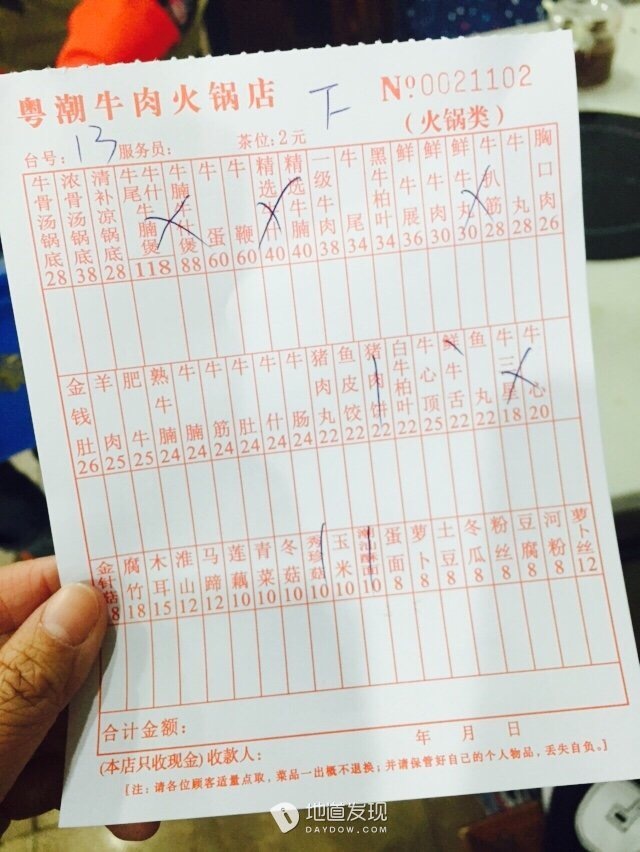 粤潮牛肉火锅店
下
Nº0021102
(火锅类)
台号: 13 服务员: 茶位: 2元
牛骨汤锅底 28
浓骨汤锅底 38
清补凉锅底 28
牛尾牛腩煲 118
牛什
牛腩牛煲 88
牛蛋 60
牛鞭 60
精选牛 40
精选牛腩 40
一级牛肉 38
牛尾 34
黑牛柏叶 34
鲜牛展 36
鲜牛肉 30
鲜牛丸 30
牛趴筋 28
牛丸 28
胸口肉 26
金钱肚 26
羊肉 25
肥牛 25
熟牛腩 24
牛腩 24
牛筋 24
牛肚 24
牛什 24
牛肠 24
猪肉丸 22
鱼皮饺 22
猪肉饼 22
白牛柏叶 22
牛心顶 25
鲜牛舌 22
鱼丸 22
牛三星 18
牛心 20
金针菇 8
腐竹 18
木耳 15
淮山 12
马蹄 12
莲藕 10
青菜 10
冬菇 10
秀珍菇 10
玉米 10
潮汕面 10
蛋面 8
萝卜 8
土豆 8
冬瓜 8
粉丝 8
豆腐 8
河粉 8
萝卜丝 12
合计金额:
年 月 日
(本店只收现金) 收款人:
[注: 请各位顾客适量点取, 菜品一出概不退换; 并请保管好自己的个人物品, 丢失自负。]
地道发现
DAYDOW.COM